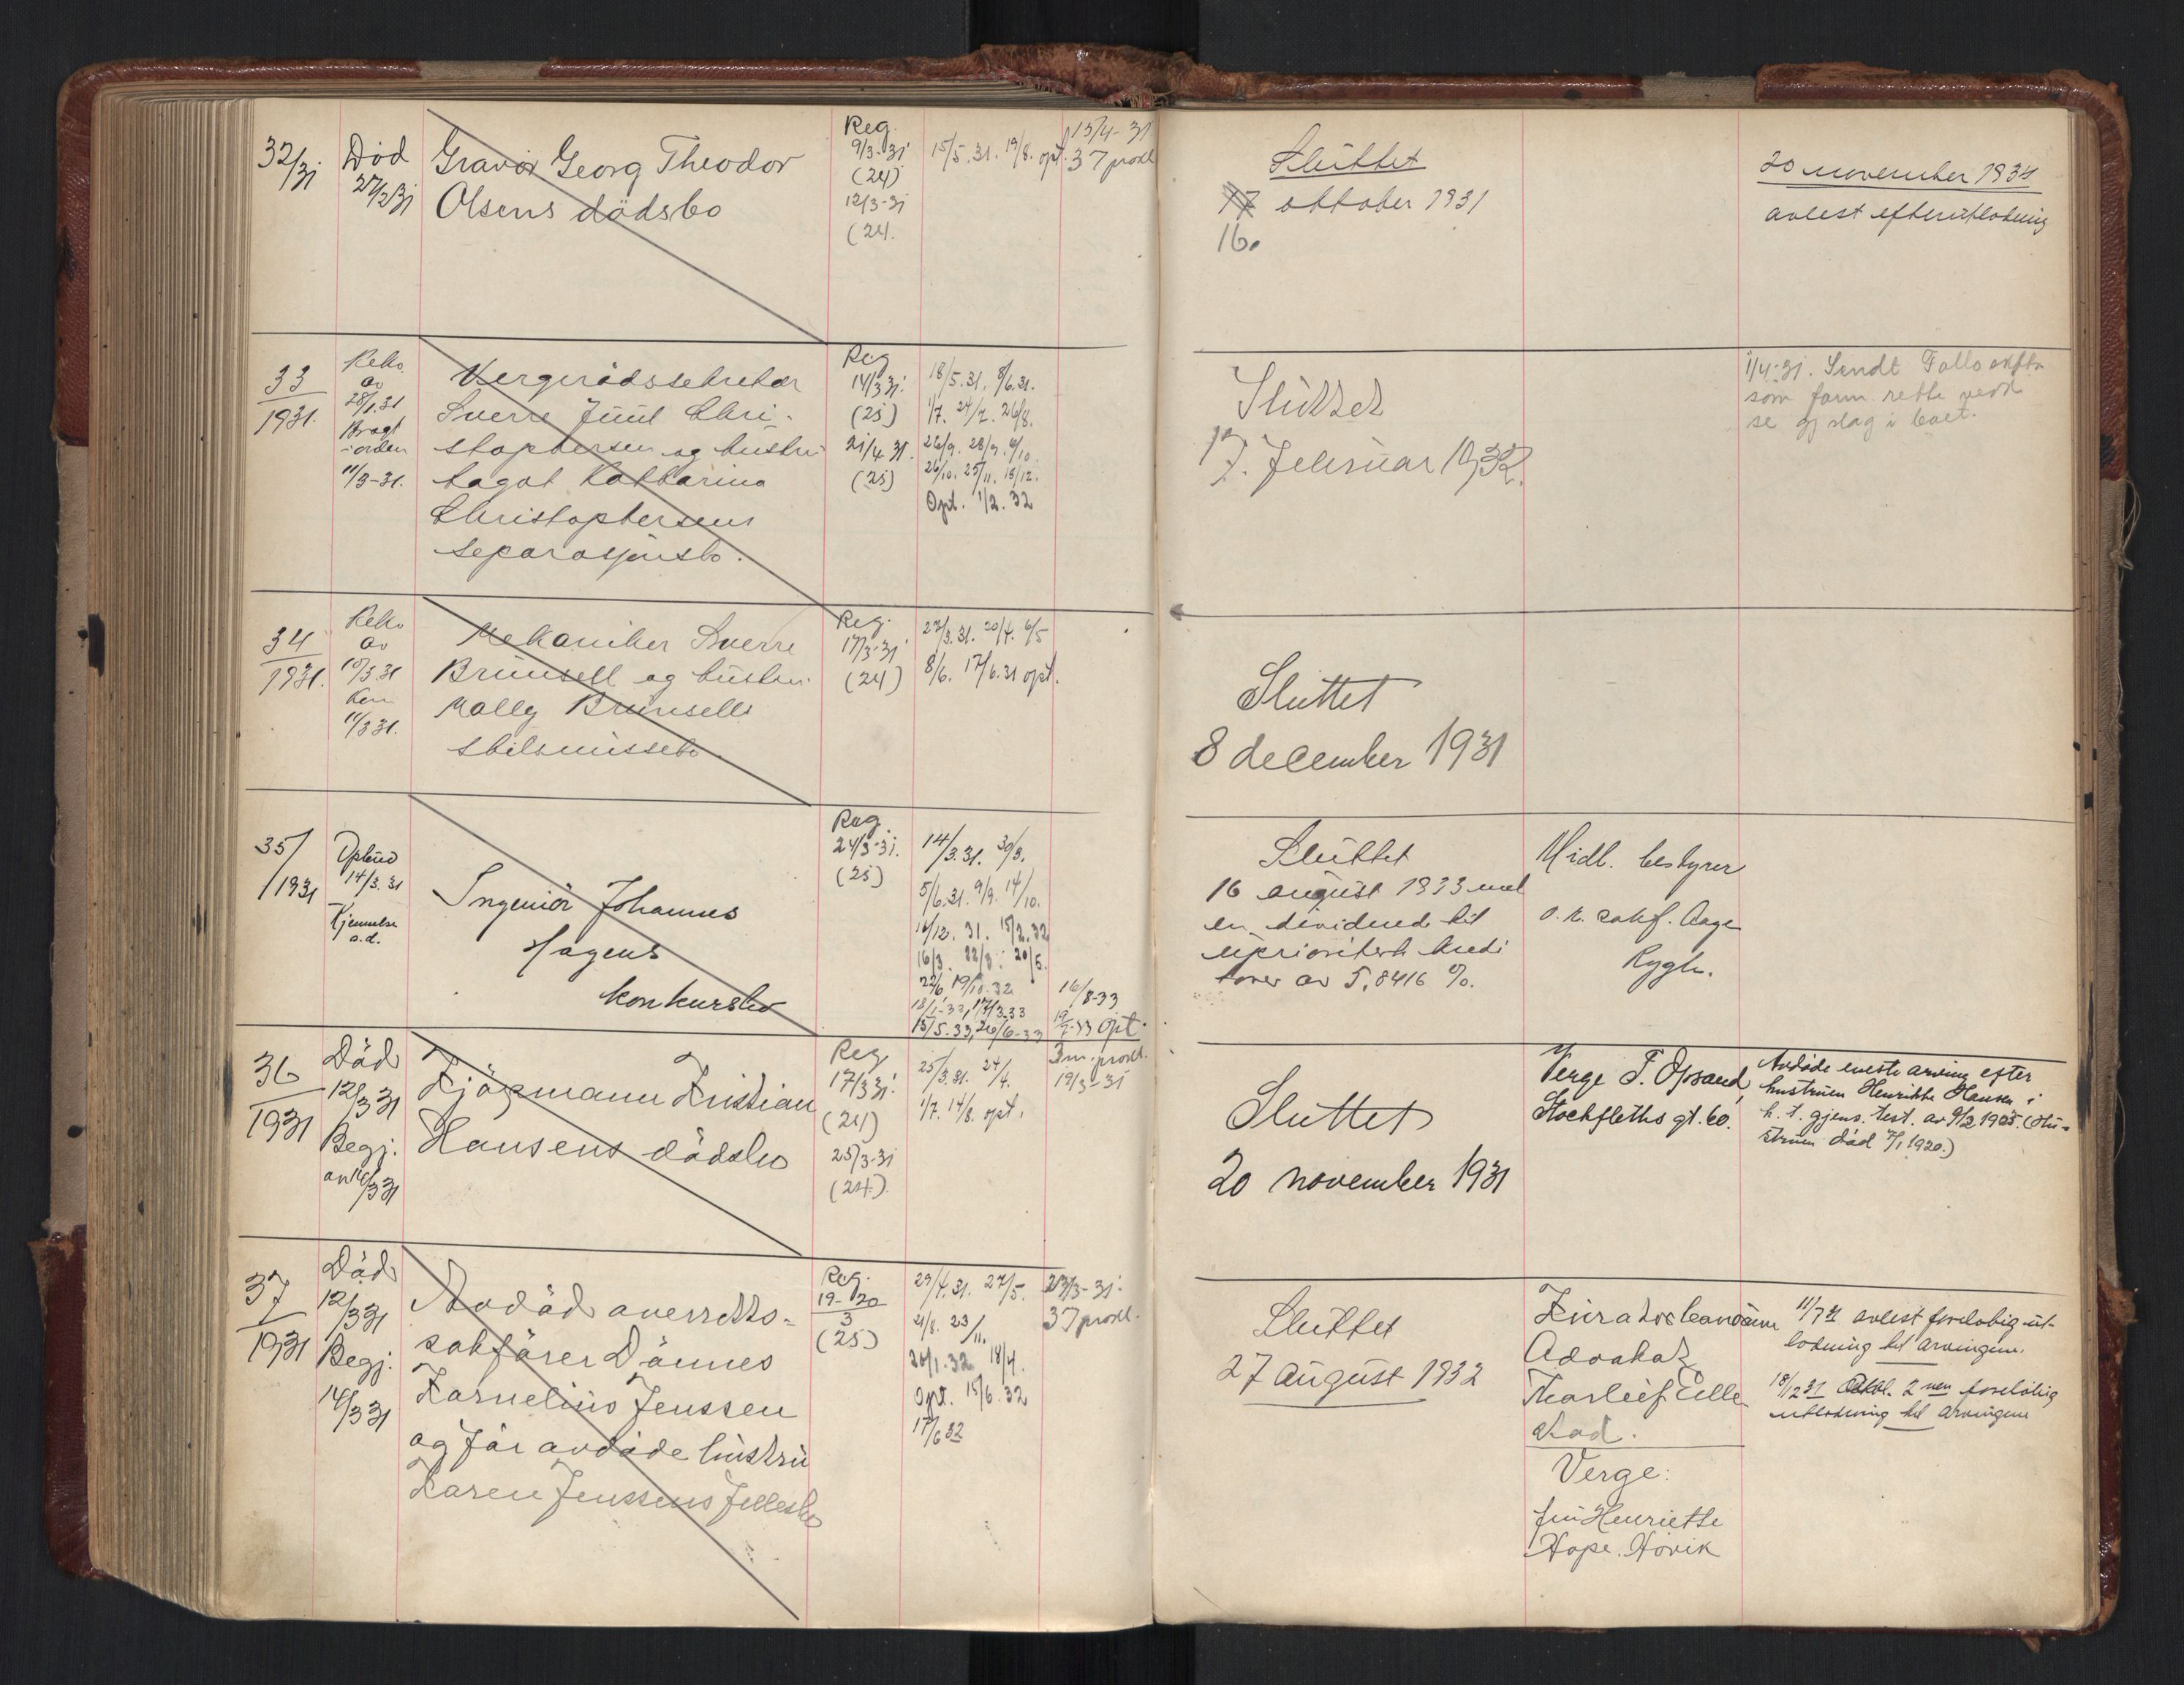 32/31
Død
27/2 31
Gravør Georg Theodor
Olsens dödsbo
Reg.
9/3-31
(24)
12/3-31
(24.
15/5.31. 19/8. opt.
13/4-31
37 prokl
Sluttet
17 oktober 1931
16.
20 november 1934
avlest efterutlodning
33
1931.
av
28/1.31
Bragt
i orden
11/3-31.
Vergerådssekretær
Sverre Juul Chri-
stophersen og hustru
Dagot Katharina
Christophersens
separasjonsbo.
Reg
14/3 31.
(25)
21/4 31.
(25)
18/5.31. 8/6.31.
1/7. 24/7. 26/8.
26/9. 28/9. 6/10.
26/10. 25/11. 18/12.
Opt. 1/2. 32
Sluttet
17. februar 1932.
1/4-31. Sendt
som form. rette vedk
34
1931.
av
10/3.31
11/3 31.
Mekaniker Sverre
Brunsell og hustru
Molly Brunsells
skilsmissebo.
Reg.
17/3-31
(24)
27/3.31. 20/4. 6/5
8/6. 17/6.31 opt.
Sluttet
8 december 1931
35/
/1931
Opbud
14/3.31
Kjennelse
s.d.
Ingeniör Johannes
Hagens
konkursbo
Reg
24/3-31.
(25)
14/3.31. 30/3.
5/6.31. 9/9. 14/10.
16/12. 31. 15/2.32
16/3. 22/3. 20/5.
22/6 19/10.32
18/1-33, 17/3-33
15/5.33, 26/6-33
16/8-33
19/7-33 opt.
Sluttet
16 august 1933 med
en dividende til
uprioriterte kredi
torer av 5,8416 %.
Midl. bestyrer
o.r. sakf. Aage
Rygh.
36
1931
Död
12/3 31
Begj.
av 16/3 31
Kjöpmann Kristian
Hansens dödsbo
Reg
17/3 31.
(24)
25/3-31
(24).
25/3.31. 24/4.
1/7. 14/8. opt.
3 m. prokl.
19/3-31
Sluttet
20 november 1931
Verge T. Opsand,
Stockfleths gt. 60.
Avdöde eneste arving efter
hustruen Henrikke Hansen i
h. t. gjens. test. av 9/2 1905. (Hu-
struen död 7/1 1920.)
37
1931
Död
12/3 31
Begj.
14/3 31
Avdöd overretts-
sakförer Dönnes
Kornelius Jenssen
og för avdöde hustru
Karen Jenssens fellesbo
Reg.
19-20
3
(25)
29/4.31. 27/5.
21/8. 23/11.
26/1.32 18/4.
Opt. 15/6.32
17/6 32
23/3-31.
37 prokl.
Sluttet
27 august 1932
Advokat
Thorleif Eille
stad.
Verge:
fru Henriette
Hope. Hövik
11/7 31 avlest forelöbig ut-
lodning til arvingene.
18/12 31 2nen forelöbig
utlodning til arvingene